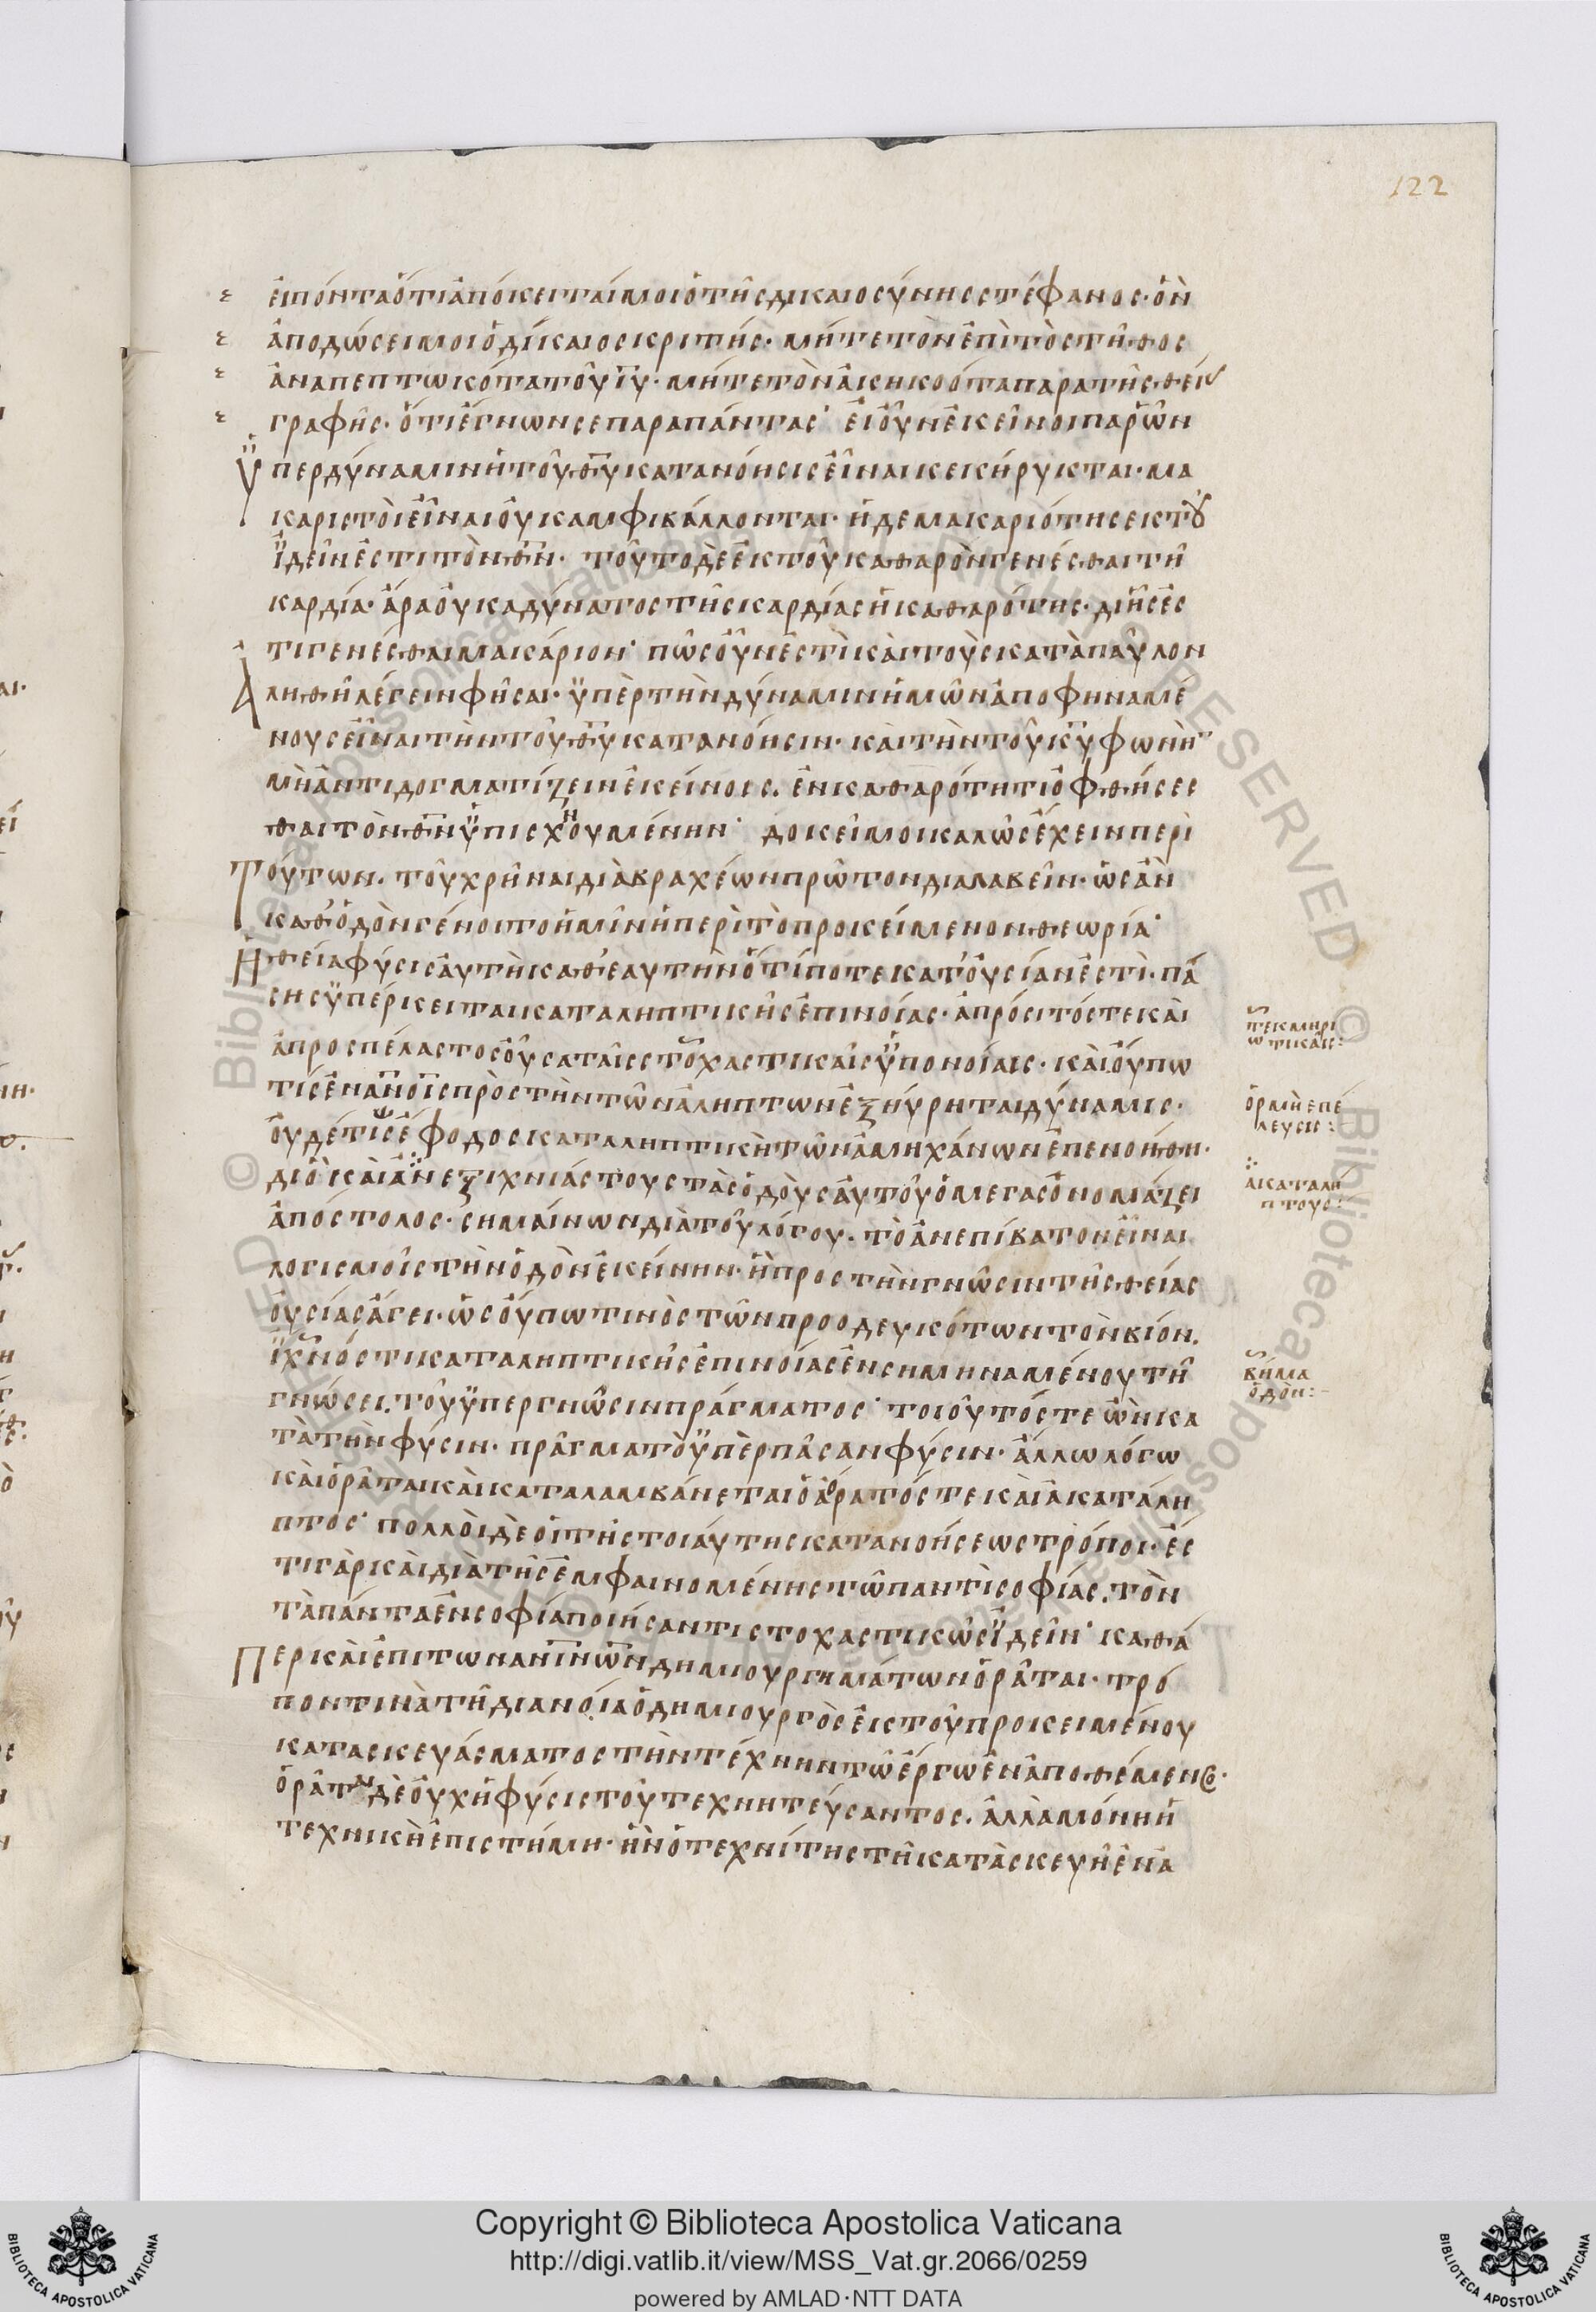 122
εἰπόντα ὅτι ἀπόκειταί μοι ὁ τῆς δικαιοσύνης στέφανος· ὃν
ἀποδώσει μοι ὁ δίκαιος κριτής· μήτε τὸν ἐπὶ τὸ στῆθος
ἀναπεπτωκότα τοῦ ῙΥ· μήτε τὸν ἀκηκοότα παρα τῆς θείας
γραφῆς· ὅτι ἔγνων σε παρα πάντας· εἰ οὖν ἐκεῖνοι παρ ὧν
ϋπερ δύναμιν ἡ τοῦ ΘΥ κατανόησις εἶναι κεκήρυκται· μα
καριστοὶ εἶναι οὐκ αμφιβάλλονται· ἡ δε μακαριότης εκ τοῦ
ϊδεῖν ἐστι τὸν ΘΝ· τοῦτο δὲ ἐκ τοῦ καθαρὸν γενέσθαι τῆ
καρδία· ἄρα οὐκ αδύνατος τῆς καρδίας ἡ καθαρότης· δι ἧς ἐσ
τι γενέσθαι μακάριον· πῶς οὖν ἐστὶ καὶ τοὺς κατὰ παῦλον
Αληθῆ λέγειν φῆσαι· ϋπὲρ τὴν δύναμιν ἡμῶν ἀποφηναμέ
νους εἶναι τὴν τοῦ ΘΥ κατανόησιν· καὶ τὴν τοῦ ΚΥ φωνὴν
μὴ ἀντιδογματίζειν ἐκείνοις. ἐν καθαρότητι ὀφθήσεσ
θαι τὸν ΘΝ ϋπισχνουμένην· δοκεῖ μοι καλῶς ἔχειν περὶ
Τούτων. τοῦ χρῆναι διὰ βραχέων πρῶτον διαλαβεῖν· ὡς ἂν
καθ ὁδὸν γένοιτο ἡμῖν ἡ περὶ τὸ προκείμενον θεωρία·
Ἡ θεία φύσις αὐτὴ καθ εαυτὴν ὅ τί ποτε κατ οὐσίαν ἐστὶ· πά
σης ϋπέρκειται καταληπτικῆς ἐπινοίας· ἀπρόσιτός τε καὶ
ἀπροσπέλαστος οὖσα ταῖς στοχαστικαῖς ϋπονοίαις· καὶ οὔπω
τίς ἐν ΑΝΟΙΣ πρὸς τὴν τῶν ἀλήπτων ἐξηύρηται δύναμις·
οὐδέ τις ἔφοδος καταληπτικὴ τῶν ἀμηχάνων ἐπενοήθη·
διὸ καὶ ἀνεξιχνιάστους τὰς ὁδοὺς αὐτοῦ ὁ μέγας ὀνομάζει
ἀπόστολος· σημαίνων διὰ τοῦ λόγου· τὸ ἀνεπίβατον εἶναι
λογισμοῖς τὴν ὁδὸν ἐκείνην· ἣ προς τὴν γνῶσιν τῆς θείας
οὐσίας ἄγει· ὡς οὔπω τινὸς τῶν προοδευκότων τὸν βίον.
ΐχνός τι καταληπτικῆς ἐπινοίας ἐνσημηναμένου τῆ
γνώσει. τοῦ ϋπερ γνῶσιν πράγματος· τοιοῦτός τε ὢν κα
τὰ τὴν φύσιν· πρᾶγμα τὸ ϋπὲρ πᾶσαν φύσιν· ἄλλω λόγω
καὶ ὁρᾶται καὶ καταλαμβάνεται ὁ ἀόρατός τε καὶ ἀκατάλη
πτος· πολλοὶ δὲ οἱ τῆς τοιαύτης κατανοήσεως τρόποι· ἐσ
τι γὰρ καὶ διὰ τῆς ἐμφαινομένης τῶ παντὶ σοφίας. τὸν
τὰ πάντα ἐν σοφία ποιήσαντι στοχαστικῶς ϊδεῖν· καθά
Περ καὶ ἐπι των ΑΝΙΝΩΝ δημιουργημάτων ὁρᾶται· τρό
πον τινὰ τῆ διανοία ὁ δημιουργὸς εἰς τοῦ προκειμένου
κατασκευάσματος τὴν τέχνην τῶ ἔργω ἐναποθέμενος·
ὁρᾶται δὲ οὐχ ἡ φύσις τοῦ τεχνητεύσαντος. ἀλλὰ μόνη ἡ
τεχνικὴ ἐπιστήμη· ἣν ὁ τεχνίτης τῆ κατὰσκευῆ ἐνα
τεκμηρι
ωτικαῖς:
ὁρμὴ επέ
λευσις:
ἀκαταλή
πτους:
βῆμα
ὁδὸν:
Copyright © Biblioteca Apostolica Vaticana
http://digi.vatlib.it/view/MSS_Vat.gr.2066/0259
powered by AMLAD·NTT DATA
BIBLIOTECA APOSTOLICA VATICANA
BIBLIOTECA APOSTOLICA VATICANA